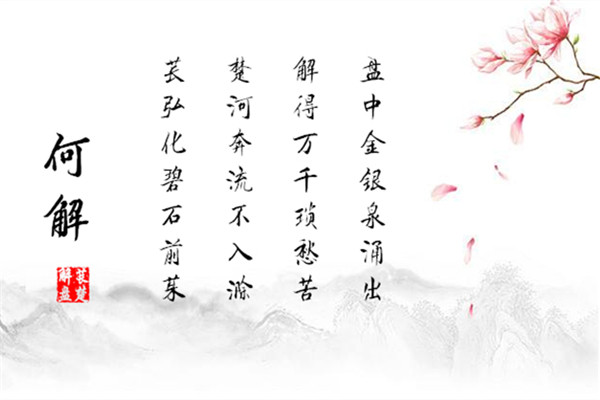 盘中金银泉涌出
解得万千琐愁苦
楚河奔流不入滁
苌弘化碧石前茱
何解
苌楚
解盘